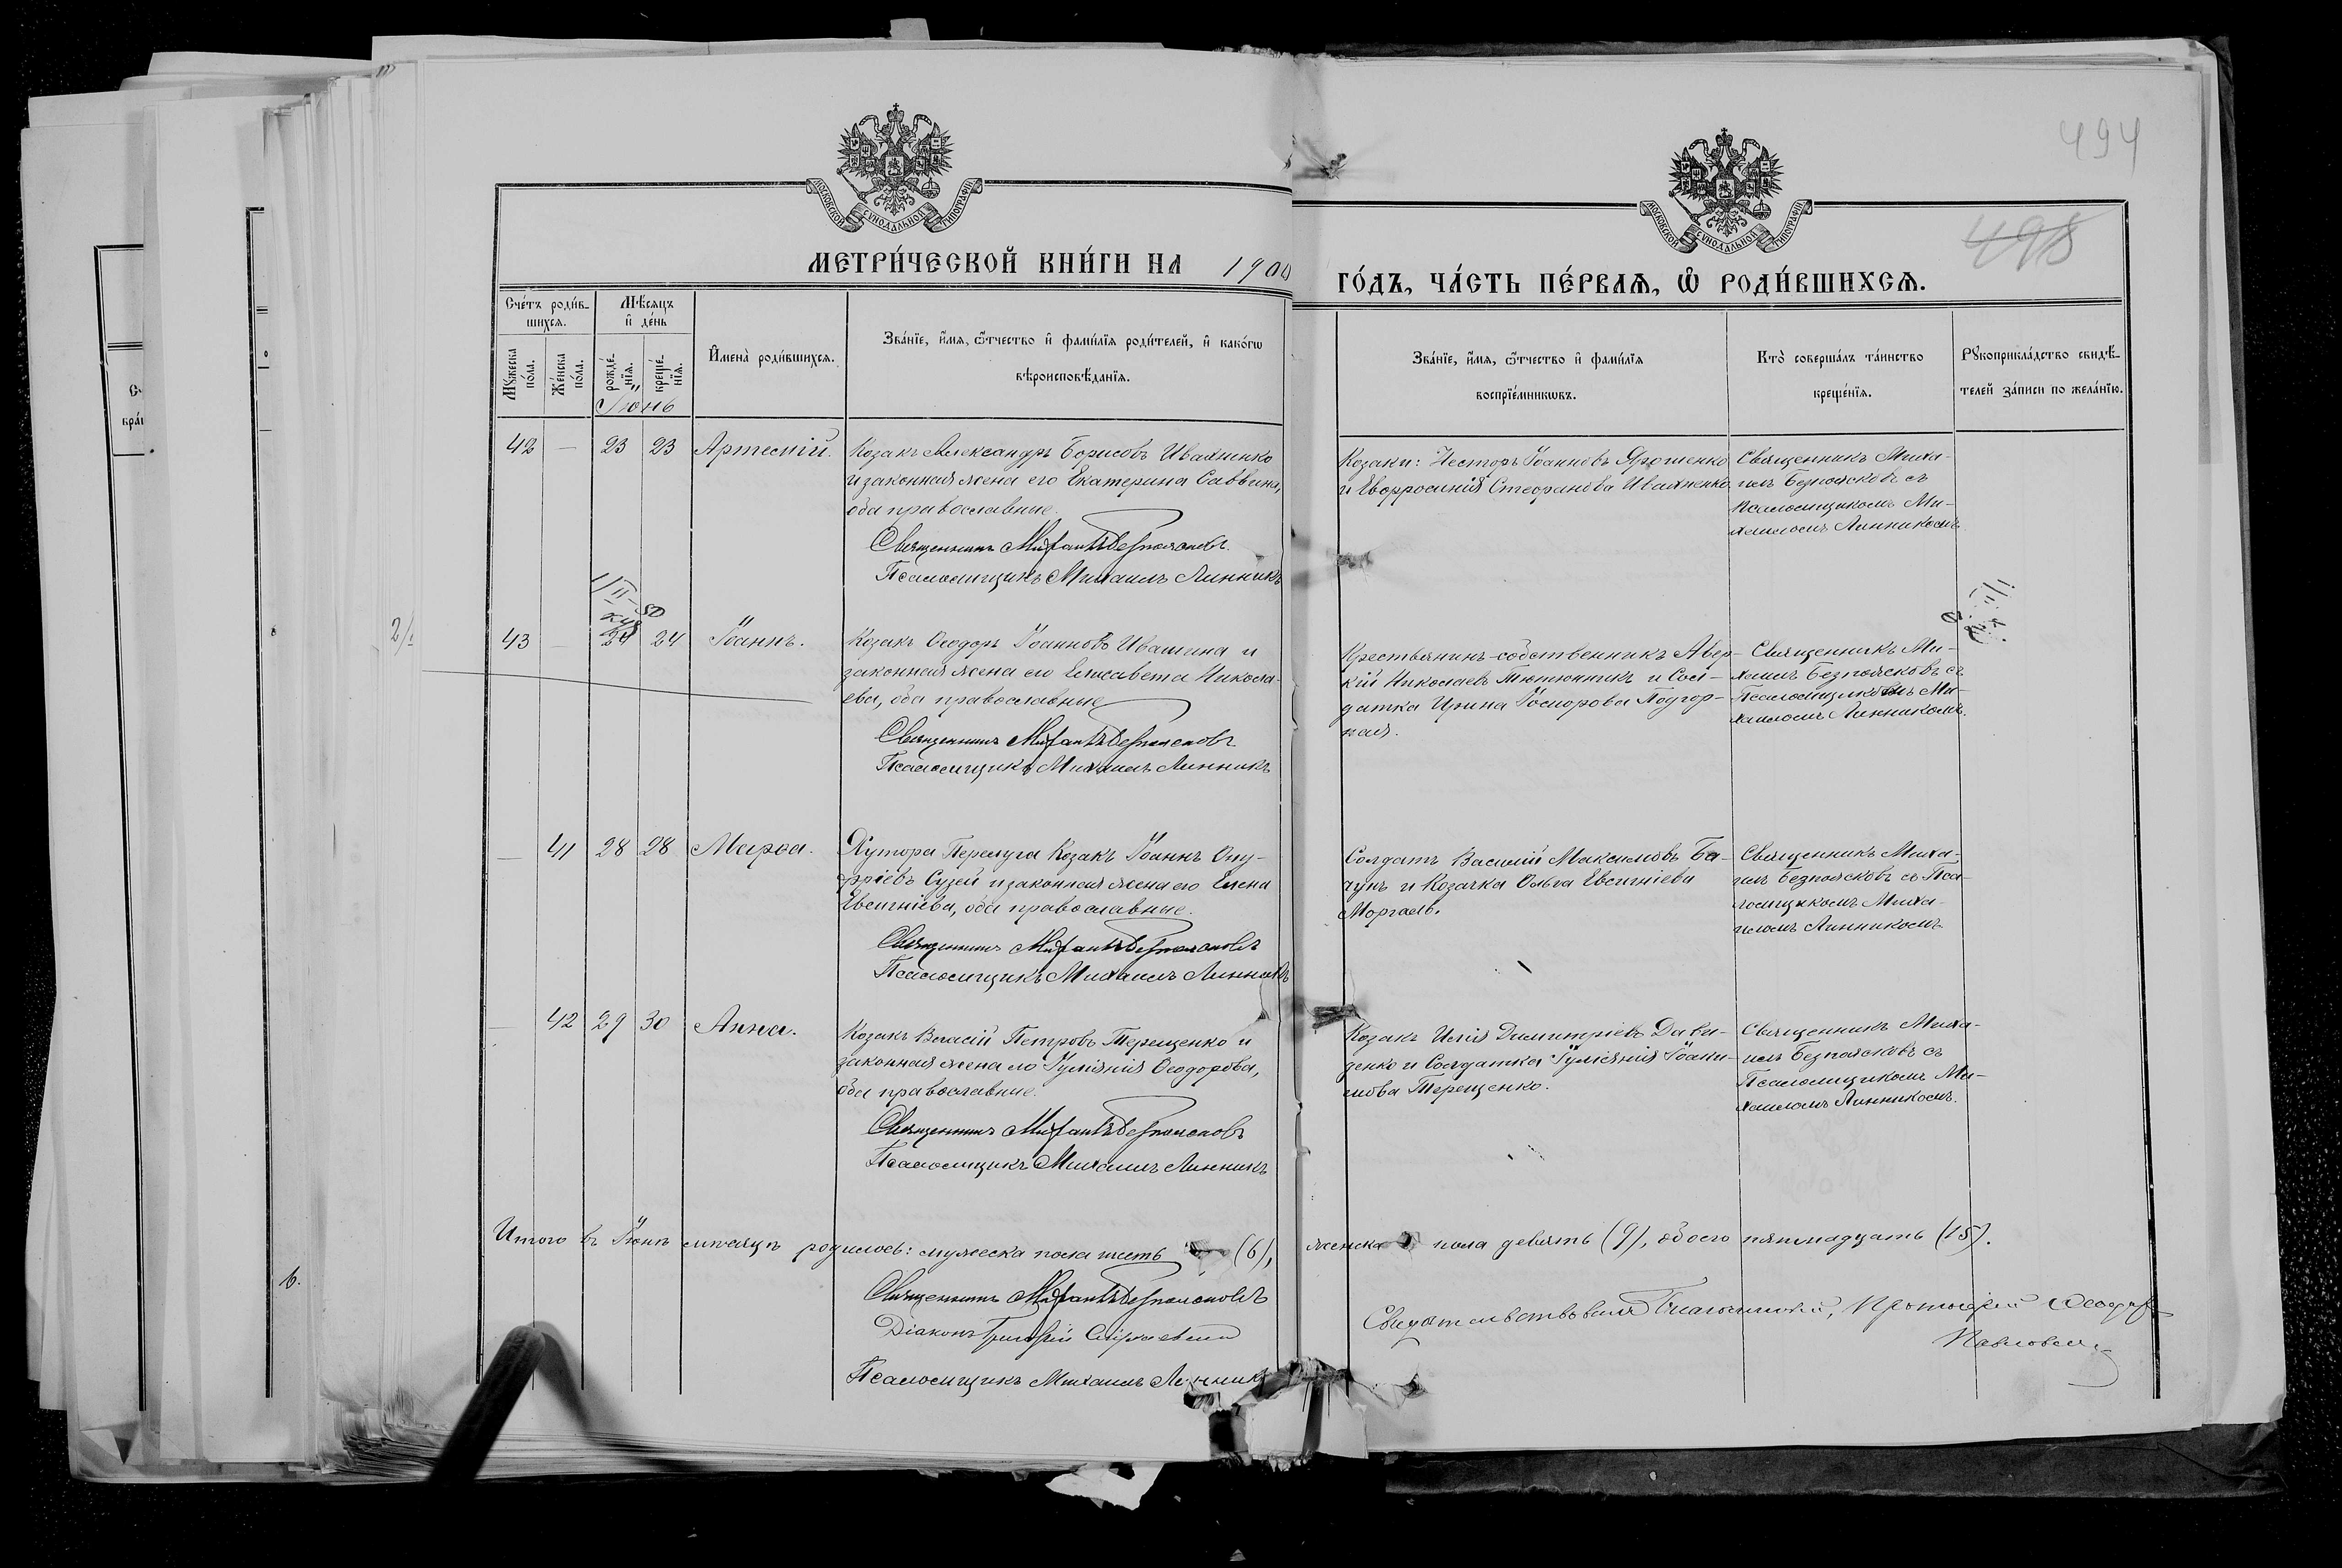 494
498
МОСКОВСКОЙ СУНОДАЛЬНОЙ ТИПОГРАФІИ
МОСКОВСКОЙ СУНОДАЛЬНОЙ ТИПОГРАФІИ
МЕТРИ́ЧЕСКОЙ КНИ́ГИ НА 1900
ГО́ДЪ, ЧА́СТЬ ПЕ́РВАѦ, Ѡ҆ РОДИ́ВШИХСѦ.
Сче́тъ роди́в-
шихсѧ.
Мꙋ́жеска по́ла.
Же́нска по́ла.
Мѣ́сѧцъ
и҆ де́нь
рожде́-нїѧ.
креще́-нїѧ.
Іюнь
И҆мена̀ роди́вшихсѧ.
Зва́нїе, и҆́мѧ, ѻ҆́тчество и҆ фами́лїѧ роди́телей, и҆ како́гѡ
вѣроисповѣ́данїѧ.
Зва́нїе, и҆́мѧ, ѻ҆́тчество и҆ фами́лїѧ
воспрїе́мникѡвъ.
Кто̀ соверша́лъ та́инство
креще́нїѧ.
Рꙋкоприкла́дство свидѣ́-
телей за́писи по жела́нїю.
42 — 23 23 Артемій.
Козакъ Александръ Борисовъ Ивахненко
и законная жена его Екатерина Саввина,
оба православные.
Священникъ Михаилъ Безпоясковъ
Псаломщикъ Михаилъ Линникъ
Козаки: Несторъ Іоанновъ Ярошенко
и Евфросинія Стефанова Ивахненко
Священникъ Миха-
илъ Безпоясковъ съ
Псаломщикомъ Ми-
хаиломъ Линникомъ
43 — 24 24 Іоаннъ.
Козакъ Ѳеодоръ Іоанновъ Ивашина и
законная жена его Елисавета Никола-
ева, оба православные
Священникъ Михаилъ Безпоясковъ
Псаломщикъ Михаилъ Линникъ
Крестьянинъ-собственникъ Авер-
кій Николаевъ Тютюнникъ и Сол-
датка Ирина Госифова Подгор-
ная.
Священникъ Ми-
хаилъ Безпоясковъ съ
Псаломщикомъ Ми-
хаиломъ Линникомъ.
— 41 28 28 Марѳа.
Хутора Перелуга Козакъ Іоаннъ Ону-
фріевъ Сузей и законная жена его Елена
Евсигніева, оба православные.
Священникъ Михаилъ Безпоясковъ
Псаломщикъ Михаилъ Линникъ
Солдатъ Василій Максимовъ Ба-
и Козачка Ольга Евсигніева
Моргаль.
Священникъ Миха-
илъ Безпоясковъ съ Пса-
ломщикомъ Миха-
иломъ Линникомъ
— 42 29 30 Анна.
Козакъ Власій Петровъ Терещенко и
законная жена его Іуліянія Ѳеодорова,
оба православные.
Священникъ Михаилъ Безпоясковъ
Псаломщикъ Михаилъ Линникъ
Козакъ Илія Димитріевъ Дави-
денко и Солдатка Іуліянія Іоаки-
мова Терещенко.
Священникъ Миха-
илъ Безпоясковъ съ
Псаломщикомъ Ми-
хаиломъ Линникомъ.
Итого въ Іюнѣ мѣсяцѣ родилось: мужеска пола шесть (6), женска пола девять (9), обоего пятнадцать (15).
Священникъ Михаилъ Безпоясковъ
Діаконъ Григорій
Псаломщикъ Михаилъ Линникъ
Свидѣтельствовалъ Благочинный, Протоіерей Ѳеодоръ